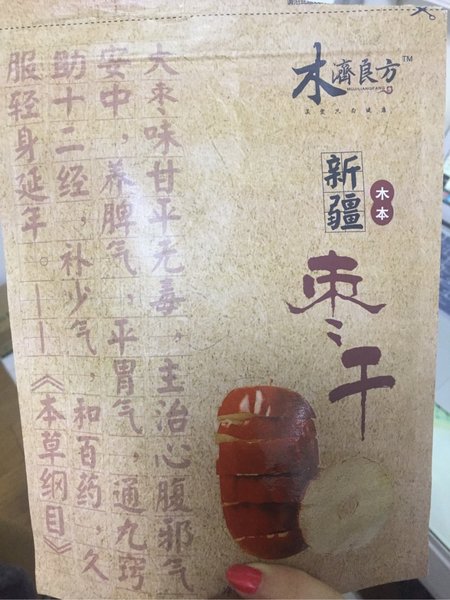 木濟良方™
MUJILIANGFANG
新疆
木本
枣干
大枣味甘平无毒，主治心腹邪气
安中，养脾气，平胃气，通九窍
助十二经，补少气，和百药，久
服轻身延年。——《本草纲目》